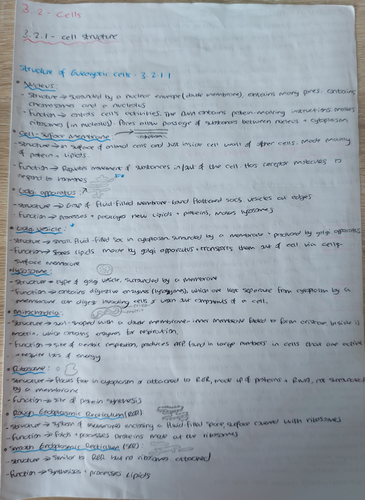 3.2 - Cells
3.2.1 - cell structure
Structure of Eukaryotic cells - 3.2.1.1
• Nucleus:
- Structure → surrounded by a nuclear envelope (double membrane), contains many pores. Contains
chromosomes and a nucleolus
- Function → controls cells activities. The DNA contains protein-making instructions. makes
ribosomes (in nucleolus). Pores allow passage of substances between nucleus + cytoplasm
• Cell-Surface Membrane
- structure → on surface of animal cells and just inside cell walls of other cells. made mainly
of protein + lipids.
- Function → Regulates movement of substances in/out of the cell. Has receptor molecules to
respond to hormones
• Golgi apparatus:
- structure → Group of fluid-filled membrane-bound flattened sacs. vesicles at edges
- Function → processes + packages new lipids + proteins, makes lysosomes
• Golgi vesicle:
- Structure → small fluid-filled sac in cytoplasm surrounded by a membrane + produced by golgi apparatus
- Function → Stores lipids made by golgi apparatus + transports them out of cell via cell-
surface membrane
• Lysosome:
- Structure → type of golgi vesicle, surrounded by a membrane
- Function → contains digestive enzymes (lysozymes), which are kept separate from cytoplasm by a
membrane. can digest invading cells + worn out components of a cell.
• Mitochondria:
- Structure → oval-shaped with a double membrane - inner membrane folded to form cristae. Inside is
matrix, which contains enzymes for respiration.
- Function → site of aerobic respiration, produces ATP, found in large numbers in cells that are active
+ require lots of energy
• Ribosome:
- Structure → floats free in cytoplasm or attached to RER, made up of proteins + RNA, not surrounded
by a membrane
- Function → Site of protein synthesis
• Rough Endoplasmic Reticulum (RER)
- structure → system of membranes enclosing a fluid-filled space, surface covered with ribosomes
- Function → folds + processes proteins made at the ribosomes
• Smooth Endoplasmic Reticulum (SER)
- structure → similar to RER but no ribosomes attached
- function → synthesises + processes lipids